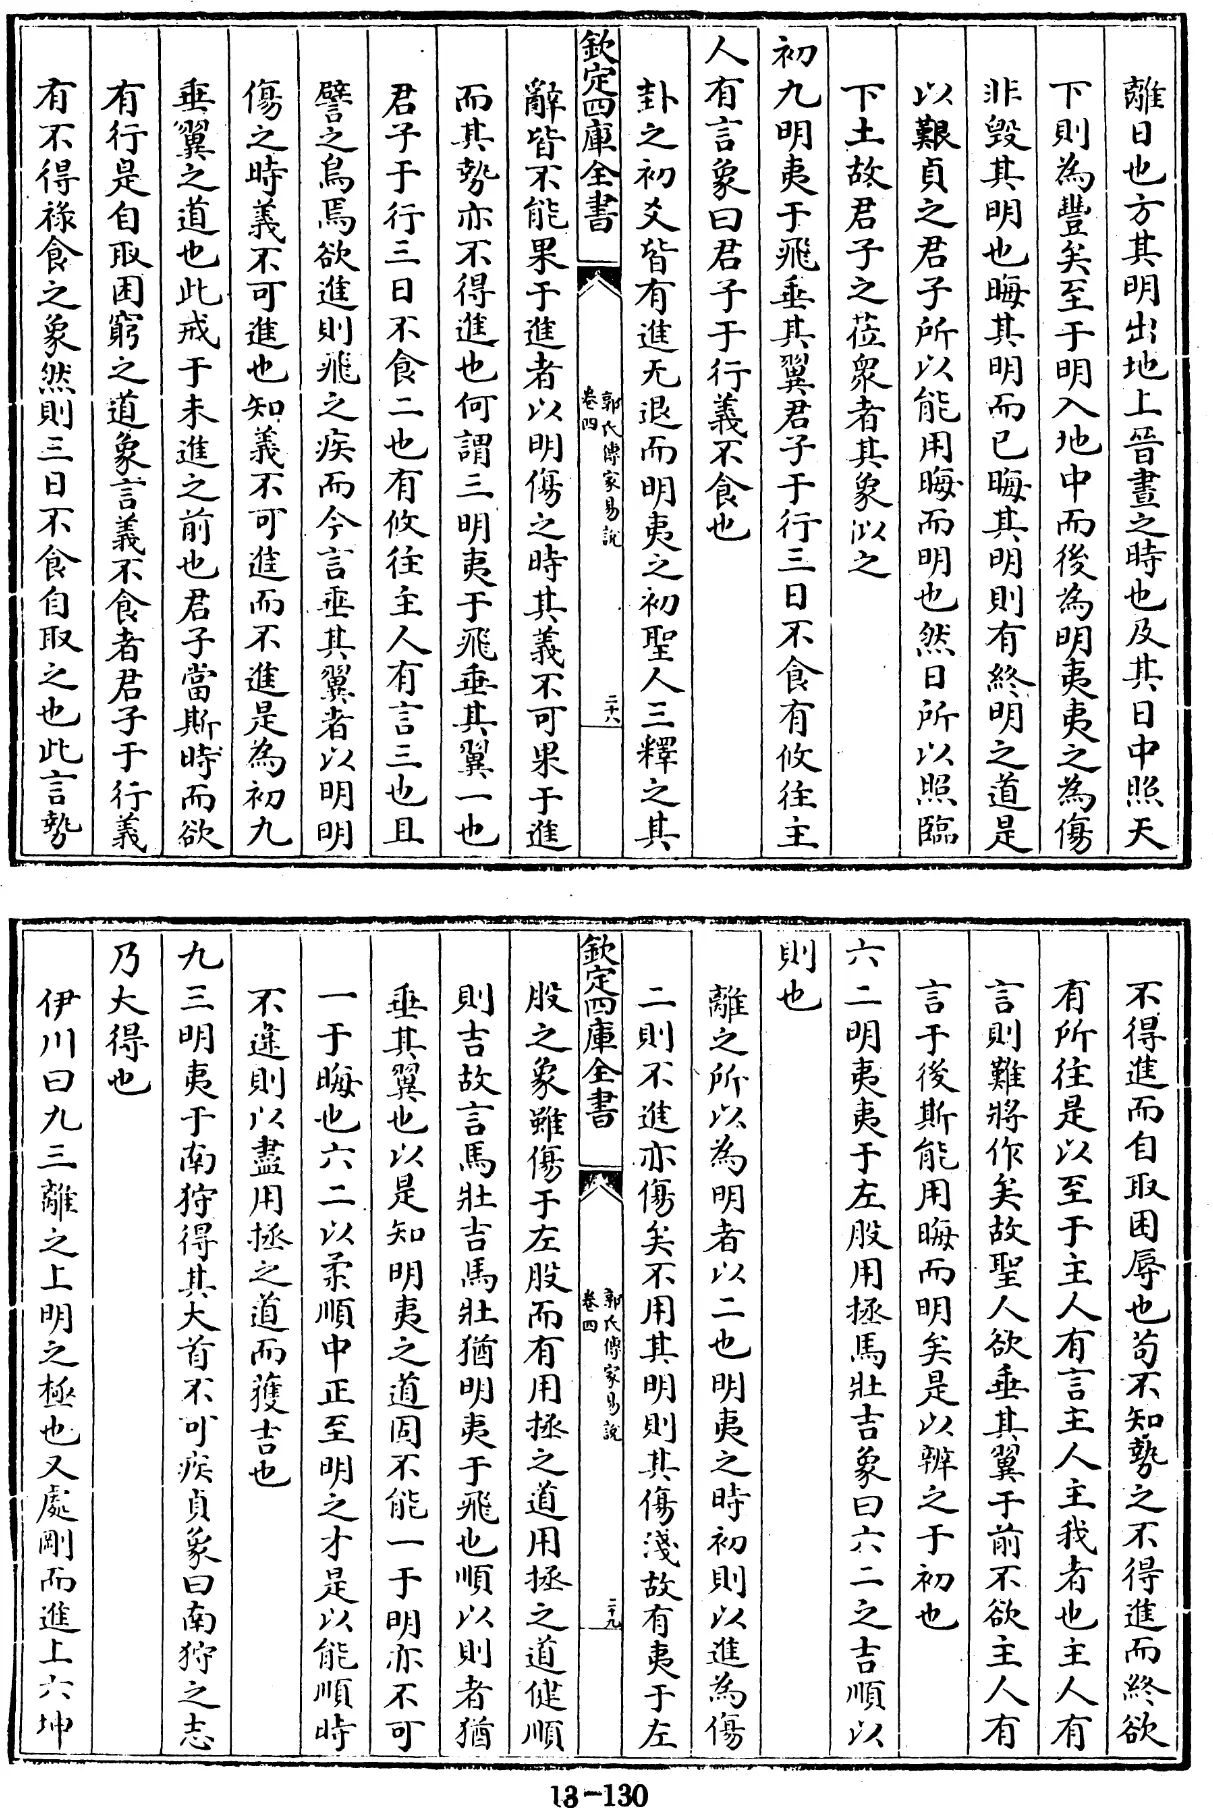 離日也方其明出地上晉晝之時也及其日中照天
下則為豐矣至于明入地中而後為明夷夷之為傷
非毀其明也晦其明而已晦其明則有終明之道是
以艱貞之君子所以能用晦而明也然日所以照臨
下土故君子之莅衆者其象以之
初九明夷于飛垂其翼君子于行三日不食有攸往主
人有言象曰君子于行義不食也
卦之初爻皆有進无退而明夷之初聖人三釋之其
欽定四庫全書
郭氏傳家易說
卷四
二十八
辭皆不能果于進者以明傷之時其義不可果于進
而其勢亦不得進也何謂三明夷于飛垂其翼一也
君子于行三日不食二也有攸往主人有言三也且
譬之鳥焉欲進則飛之疾而今言垂其翼者以明明
傷之時義不可進也知義不可進而不進是為初九
垂翼之道也此戒于未進之前也君子當斯時而欲
有行是自取困窮之道象言義不食者君子于行義
有不得祿食之象然則三日不食自取之也此言勢
不得進而自取困辱也茍不知勢之不得進而終欲
有所往是以至于主人有言主人主我者也主人有
言則難將作矣故聖人欲垂其翼于前不欲主人有
言于後斯能用晦而明矣是以辨之于初也
六二明夷夷于左股用拯馬壯吉象曰六二之吉順以
則也
離之所以為明者以二也明夷之時初則以進為傷
二則不進亦傷矣不用其明則其傷淺故有夷于左
欽定四庫全書
郭氏傳家易說
卷四
二十九
股之象雖傷于左股而有用拯之道用拯之道健順
則吉故言馬壯吉馬壯猶明夷于飛也順以則者猶
垂其翼也以是知明夷之道固不能一于明亦不可
一于晦也六二以柔順中正至明之才是以能順時
不違則以盡用拯之道而獲吉也
九三明夷于南狩得其大首不可疾貞象曰南狩之志
乃大得也
伊川曰九三離之上明之極也又處剛而進上六坤
13-130